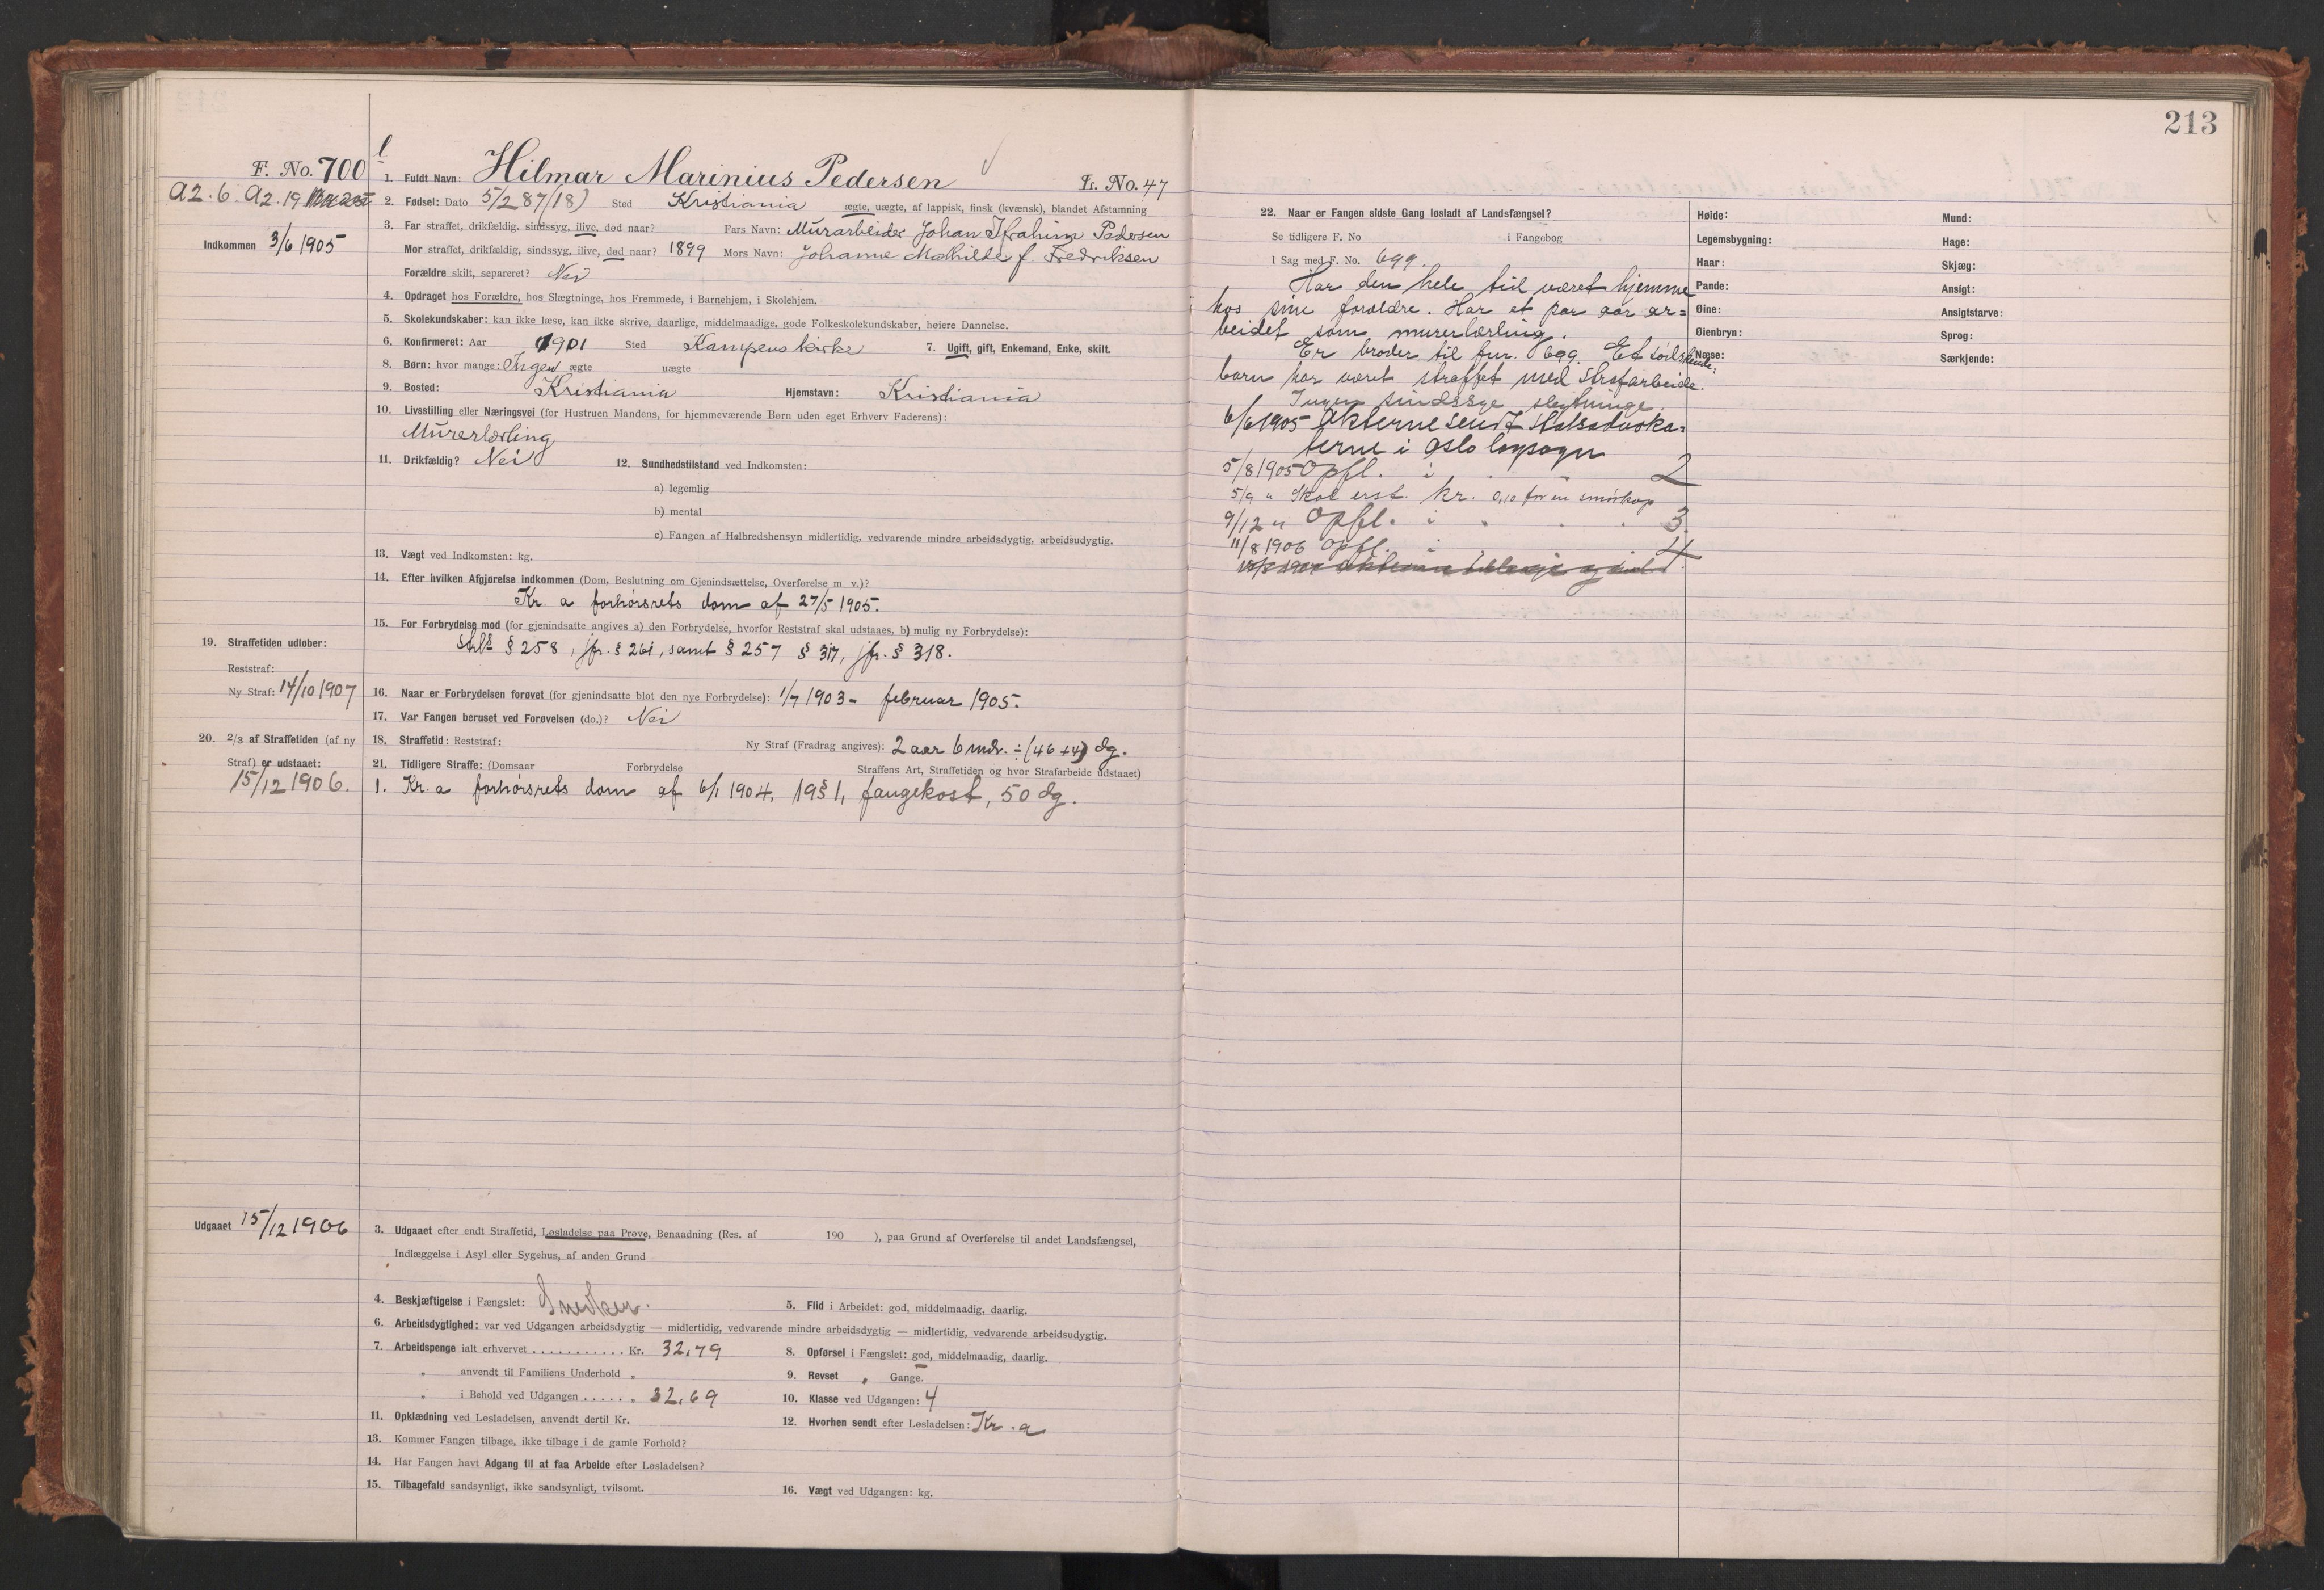 213
F. No. 700
A2. 6. A2. 19
Indkommen 3/6 1905
1. Fuldt Navn: Hilmar Marinius Pedersen L. No. 47
2. Fødsel: Dato 5/2 87 (18) Sted Kristiania ægte, uægte, af lappisk, finsk (kvænsk), blandet Afstamning
3. Far straffet, drikfældig, sindssyg, ilive, død naar? Fars Navn: Murarbeider Johan Pedersen
Mor straffet, drikfældig, sindssyg, ilive, død naar? 1899 Mors Navn: Johanne Mathilde f. Fredriksen
Forældre skilt, separeret? Nei
4. Opdraget hos Forældre, hos Slægtninge, hos Fremmede, i Barnehjem, i Skolehjem.
5. Skolekundskaber: kan ikke læse, kan ikke skrive, daarlige, middelmaadige, gode Folkeskolekundskaber, høiere Dannelse.
6. Konfirmeret: Aar 1901 Sted Kampens kirke 7. Ugift, gift, Enkemand, Enke, skilt.
8. Børn: hvor mange: Ingen ægte uægte
9. Bosted: Kristiania Hjemstavn: Kristiania
10. Livsstilling eller Næringsvei (for Hustruen Mandens, for hjemmeværende Børn uden eget Erhverv Faderens):
Murerlærling
11. Drikfældig? Nei 12. Sundhedstilstand ved Indkomsten:
a) legemlig
b) mental
c) Fangen af Helbredshensyn midlertidig, vedvarende mindre arbeidsdygtig, arbeidsudygtig.
13. Vægt ved Indkomsten: kg.
14. Efter hvilken Afgjørelse indkommen (Dom, Beslutning om Gjenindsættelse, Overførelse m. v.)?
Kr. a forhørsrets dom af 27/5 1905.
15. For Forbrydelse mod (for gjenindsatte angives a) den Forbrydelse, hvorfor Reststraf skal udstaaes, b) mulig ny Forbrydelse):
§ 258, jfr. § 261, samt § 257 § 317, jfr. § 318.
19. Straffetiden udløber:
Reststraf:
Ny Straf: 14/10 1907
16. Naar er Forbrydelsen forøvet (for gjenindsatte blot den nye Forbrydelse): 1/7 1903 - februar 1905.
17. Var Fangen beruset ved Forøvelsen (do.)? Nei
20. 2/3 af Straffetiden (af ny
Straf) er udstaaet:
15/12 1906.
18. Straffetid: Reststraf: Ny Straf (Fradrag angives): 2 aar 6 mdr. ÷ (46 + 4) dg.
21. Tidligere Straffe: (Domsaar Forbrydelse Straffens Art, Straffetiden og hvor Strafarbeide udstaaet)
1. Kr. a forhørsrets dom af 6/1 1904, 19 § 1, fangekost, 50 dg.
Udgaaet 15/12 1906
3. Udgaaet efter endt Straffetid, Løsladelse paa Prøve, Benaadning (Res. af 190 ), paa Grund af Overførelse til andet Landsfængsel,
Indlæggelse i Asyl eller Sygehus, af anden Grund
4. Beskjæftigelse i Fængslet: Snedker.
5. Flid i Arbeidet: god, middelmaadig, daarlig.
6. Arbeidsdygtighed: var ved Udgangen arbeidsdygtig — midlertidig, vedvarende mindre arbeidsdygtig — midlertidig, vedvarende arbeidsudygtig.
7. Arbeidspenge ialt erhvervet . . . . . . . . . . . Kr. 32,79
8. Opførsel i Fængslet: god, middelmaadig, daarlig.
" anvendt til Familiens Underhold "
9. Revset " Gange.
" i Behold ved Udgangen . . . . . . 32,69
10. Klasse ved Udgangen: 4
11. Opklædning ved Løsladelsen, anvendt dertil Kr.
12. Hvorhen sendt efter Løsladelsen: Kr. a
13. Kommer Fangen tilbage, ikke tilbage i de gamle Forhold?
14. Har Fangen havt Adgang til at faa Arbeide efter Løsladelsen?
15. Tilbagefald sandsynligt, ikke sandsynligt, tvilsomt.
16. Vægt ved Udgangen: kg.
22. Naar er Fangen sidste Gang løsladt af Landsfængsel?
Se tidligere F. No i Fangebog
I Sag med F. No. 699.
Har den hele tid været hjemme
hos sine forældre. Har et par aar ar=
beidet som murerlærling.
Er broder til fnr. 699. Et södskende-
barn har været straffet med strafarbeide.
Ingen sindssyge slegtninge.
6/6 1905 Akterne sendt Statsadvoka=
terne i Oslo lagsogn
5/8 1905 Opfl. i 2
5/9 " Skal erst. kr. 0,10 for en smørkop
9/12 " Opfl. i 3.
11/8 1906 Opfl. i 4
Høide:
Legemsbygning:
Haar:
Pande:
Øine:
Øienbryn:
Næse:
Mund:
Hage:
Skjæg:
Ansigt:
Ansigtsfarve:
Sprog:
Særkjende: